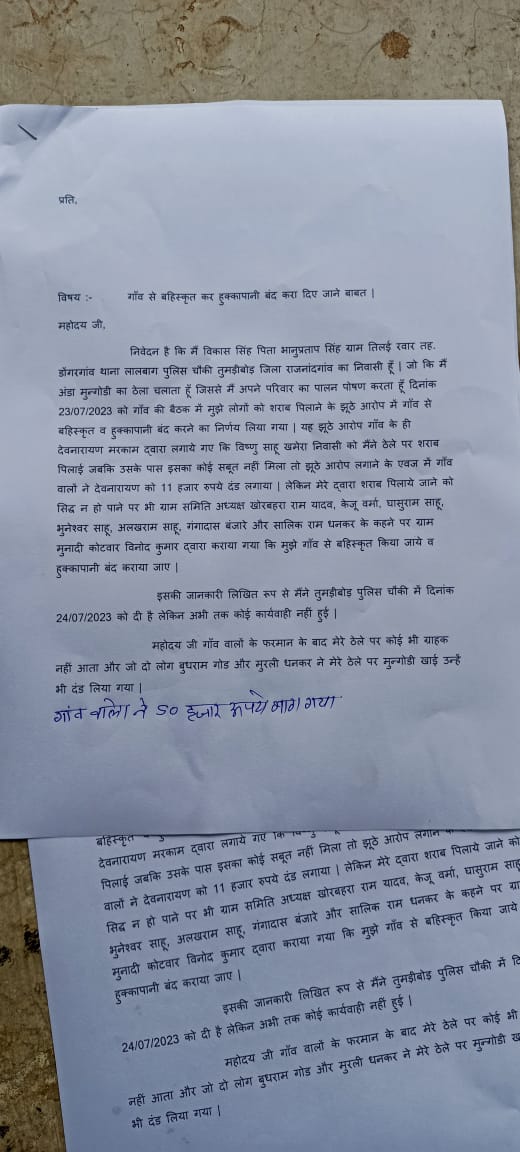 प्रति,
विषय :- गाँव से बहिस्कृत कर हुक्कापानी बंद करा दिए जाने बाबत |
महोदय जी,
निवेदन है कि मैं विकास सिंह पिता भानुप्रताप सिंह ग्राम तिलई रवार तह.
डोंगरगांव थाना लालबाग पुलिस चौकी तुमड़ीबोड़ जिला राजनांदगांव का निवासी हूँ | जो कि मैं
अंडा मुन्गोडी का ठेला चलाता हूँ जिससे मैं अपने परिवार का पालन पोषण करता हूँ दिनांक
23/07/2023 को गाँव की बैठक में मुझे लोगों को शराब पिलाने के झूठे आरोप में गाँव से
बहिस्कृत व हुक्कापानी बंद करने का निर्णय लिया गया | यह झूठे आरोप गाँव के ही
देवनारायण मरकाम द्वारा लगाये गए कि विष्णु साहू खमेरा निवासी को मैंने ठेले पर शराब
पिलाई जबकि उसके पास इसका कोई सबूत नहीं मिला तो झूठे आरोप लगाने के एवज में गाँव
वालों ने देवनारायण को 11 हजार रुपये दंड लगाया | लेकिन मेरे द्वारा शराब पिलाये जाने को
सिद्ध न हो पाने पर भी ग्राम समिति अध्यक्ष खोरबहरा राम यादव, केजू वर्मा, घासुराम साहू,
भुनेश्वर साहू, अलखराम साहू, गंगादास बंजारे और सालिक राम धनकर के कहने पर ग्राम
मुनादी कोटवार विनोद कुमार द्वारा कराया गया कि मुझे गाँव से बहिस्कृत किया जाये व
हुक्कापानी बंद कराया जाए |
इसकी जानकारी लिखित रूप से मैंने तुमड़ीबोड़ पुलिस चौकी में दिनांक
24/07/2023 को दी है लेकिन अभी तक कोई कार्यवाही नहीं हुई |
महोदय जी गाँव वालों के फरमान के बाद मेरे ठेले पर कोई भी ग्राहक
नहीं आता और जो दो लोग बुधराम गोड और मुरली धनकर ने मेरे ठेले पर मुन्गोडी खाई उन्हें
भी दंड लिया गया |
गांव वालो ने 50 हजार रूपये मांगा गया
बहिस्कृत
देवनारायण मरकाम द्वारा लगाये गए कि
पिलाई जबकि उसके पास इसका कोई सबूत नहीं मिला तो झूठे आरोप लगाने
वालों ने देवनारायण को 11 हजार रुपये दंड लगाया | लेकिन मेरे द्वारा शराब पिलाये जाने को
सिद्ध न हो पाने पर भी ग्राम समिति अध्यक्ष खोरबहरा राम यादव, केजू वर्मा, घासुराम साहू
भुनेश्वर साहू, अलखराम साहू, गंगादास बंजारे और सालिक राम धनकर के कहने पर ग्रा
मुनादी कोटवार विनोद कुमार द्वारा कराया गया कि मुझे गाँव से बहिस्कृत किया जाये
हुक्कापानी बंद कराया जाए |
इसकी जानकारी लिखित रूप से मैंने तुमड़ीबोड़ पुलिस चौकी में दि
24/07/2023 को दी है लेकिन अभी तक कोई कार्यवाही नहीं हुई |
महोदय जी गाँव वालों के फरमान के बाद मेरे ठेले पर कोई भी
नहीं आता और जो दो लोग बुधराम गोड और मुरली धनकर ने मेरे ठेले पर मुन्गोडी ख
भी दंड लिया गया |